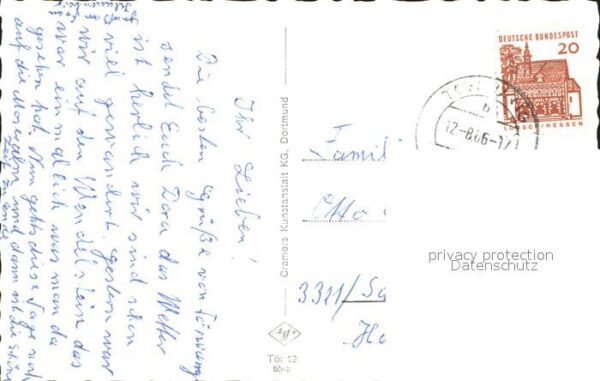 Ihr Lieben!
Die besten Grüße von
sendet Euch Dora das Wetter
ist herlich wir sind schon
viel gewandert. gestern war
wir auf den Wendelstein das
war einmalich was man da
gesehen hat. Nun gehts diese Tage noch
auf die und dann ist die schöne
Zeit zu ende
Cramers Kunstanstalt KG, Dortmund
Tör 12
65-5
DEUTSCHE BUNDESPOST
20
LORSCH/HESSEN
12-8.66-17
b
Famil
Otto
3311/
privacy protection
Datenschutz